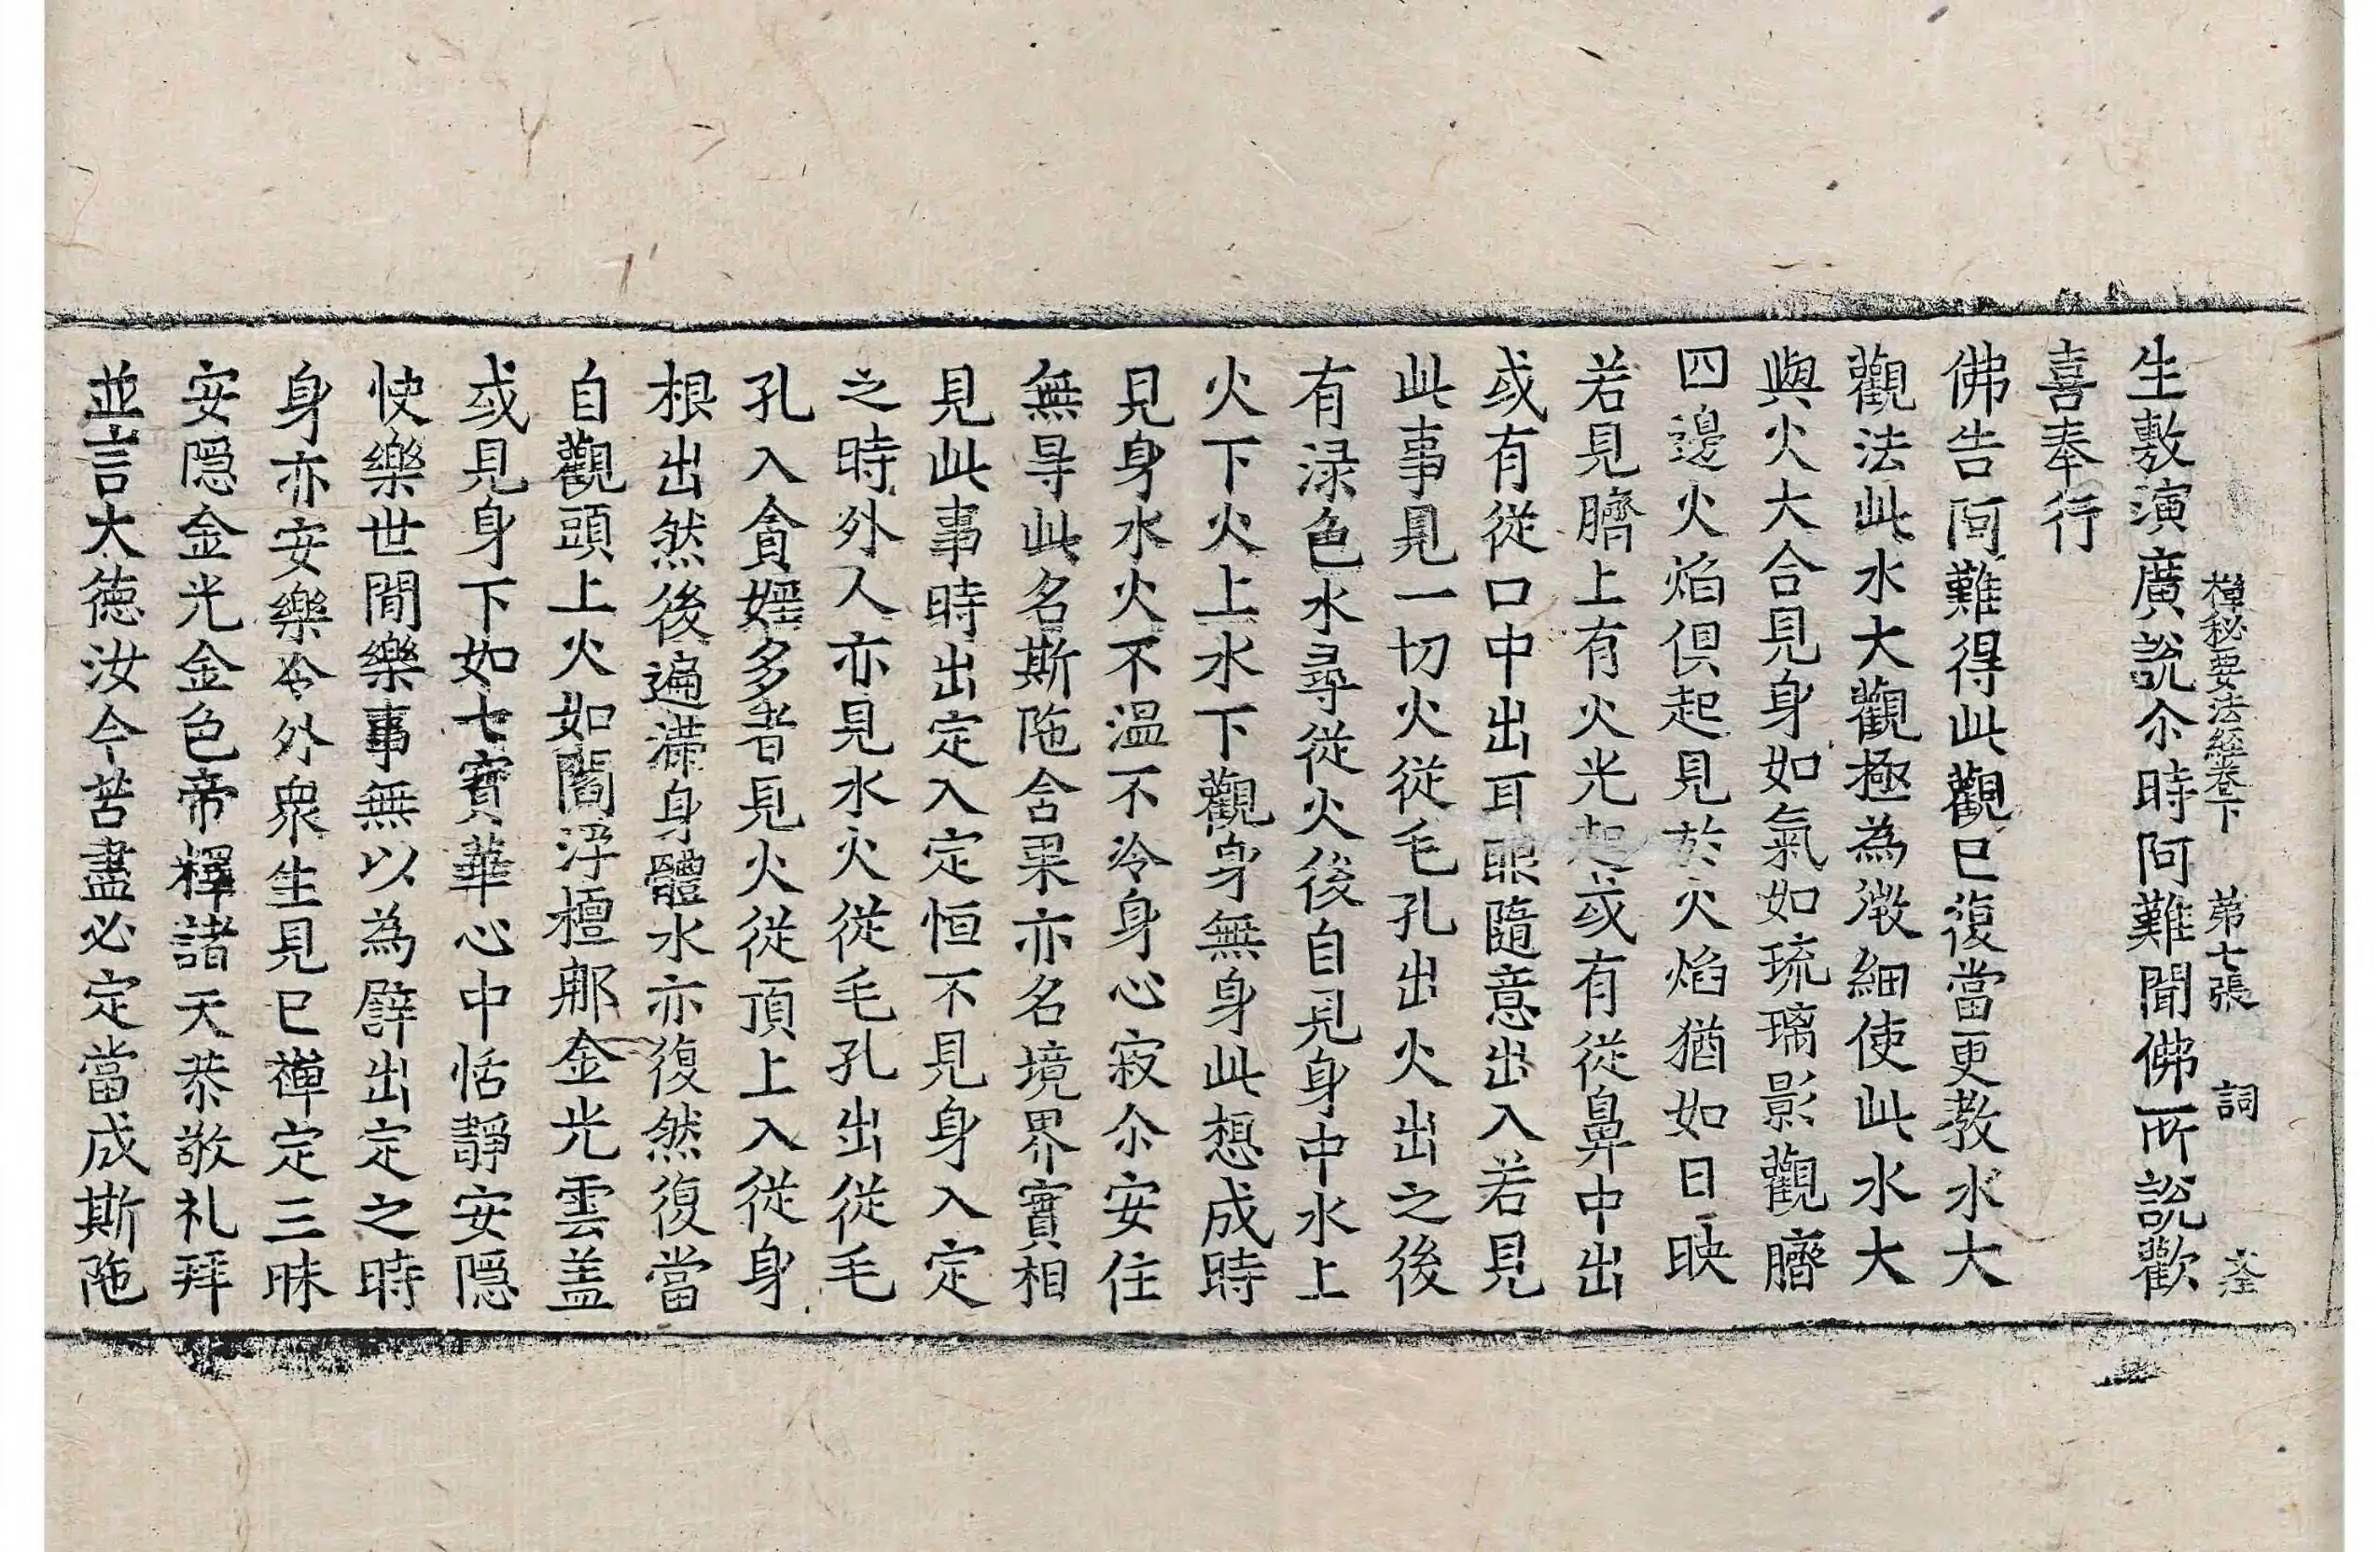 禪秘要法經卷下 第七張 詞
生敷演廣說尒時阿難聞佛所說歡
喜奉行
佛告阿難得此觀已復當更教水大
觀法此水大觀極為微細使此水大
與火大合見身如氣如琉璃影觀臍
四邊火焰俱起見於火焰猶如日映
若見臍上有火光起或有從鼻中出
或有從口中出耳眼隨意出入若見
此事見一切火從毛孔出火出之後
有渌色水尋從火後自見身中水上
火下火上水下觀身無身此想成時
見身水火不溫不冷身心寂尒安住
無㝵此名斯陁含果亦名境界實相
見此事時出定入定恒不見身入定
之時外人亦見水火從毛孔出從毛
孔入貪婬多者見火從頂上入從身
根出然後遍滿身體水亦復然復當
自觀頭上火如閻浮檀那金光雲盖
或見身下如七寶華心中恬靜安隱
快樂世間樂事無以為譬出定之時
身亦安樂令外眾生見已禪定三昧
安隱金光金色帝釋諸天恭敬礼拜
並言大德汝今苦盡必定當成斯陁